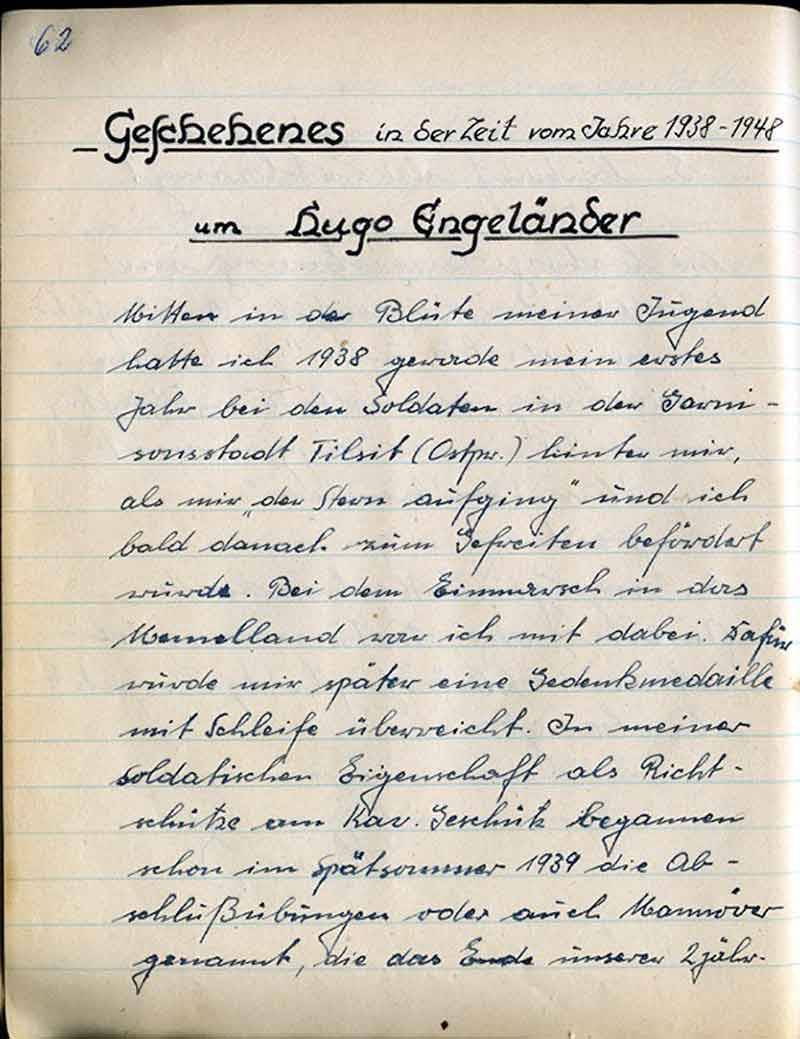 62
Geschehenes in der Zeit vom Jahre 1938 - 1948
um Hugo Engeländer
Mitten in der Blüte meiner Jugend
hatte ich 1938 gerade mein erstes
Jahr bei den Soldaten in der Garni-
sonsstadt Tilsit (Ostpr.) hinter mir,
als mir „der Stern aufging" und ich
bald danach zum Gefreiten befördert
wurde. Bei dem Einmarsch in das
Memelland war ich mit dabei. Dafür
wurde mir später eine Gedenkmedaille
mit Schleife überreicht. In meiner
soldatischen Eigenschaft als Richt-
schütze am Kav. Geschütz begannen
schon im Spätsommer 1939 die Ab-
schlußübungen oder auch Mannöver
genannt, die das Ende unserer 2jähr-